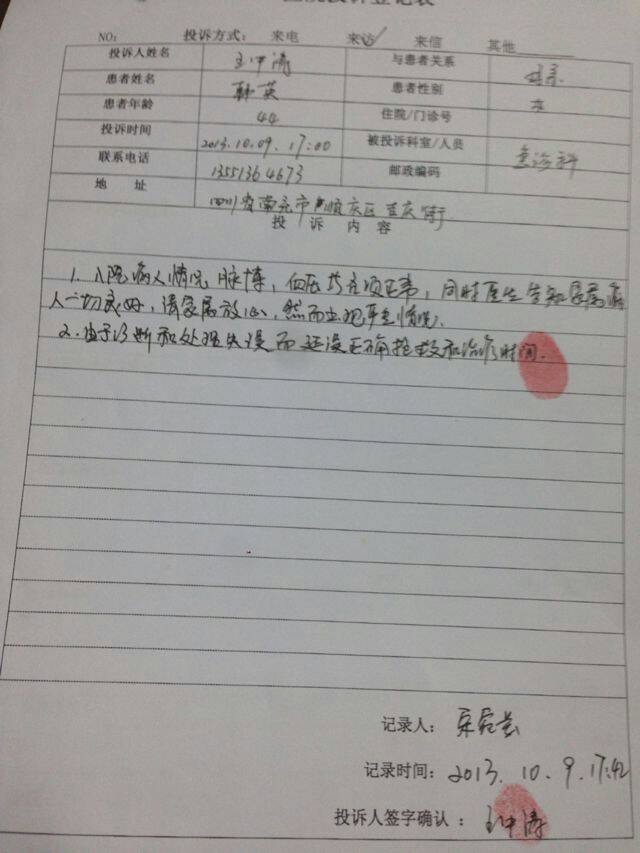 医院投诉登记表
NO: 投诉方式: 来电 来访✓ 来信 其他
投诉人姓名 王中涛 与患者关系
患者姓名 韩英 患者性别 女
患者年龄 44 住院/门诊号
投诉时间 2013.10.09. 17:00 被投诉科室/人员 急诊科
联系电话 13551364673 邮政编码
地 址 四川省南充市顺庆区 街
投 诉 内 容
1. 入院病人情况脉搏,血压等各项正常,同时医生告知家属病
人一切良好,请家属放心,然而出现 情况.
2. 由于诊断和处理失误而延误正确抢救和治疗时间.
记录人:
记录时间: 2013. 10. 9. 17:42
投诉人签字确认 : 王中涛